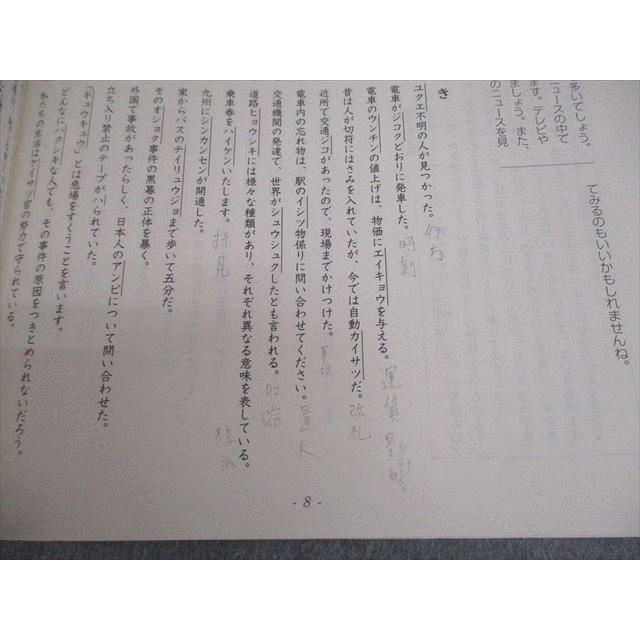 多いでしょう。
ニュースの中で
ます。テレビや
ましょう。また、
のニュースを見
てみるのもいいかもしれませんね。
き
ユクエ不明の人が見つかった。行方
電車がジコクどおりに発車した。時刻
電車のウンチンの値上げは、物価にエイキョウを与える。運賃 影響
昔は人が切符にはさみを入れていたが、今では自動カイサツだ。改札
近所で交通ジコがあったので、現場までかけつけた。
電車内の忘れ物は、駅のイシツ物係りに問い合わせてください。
交通機関の発達で、世界がシュウシュクしたとも言われる。収縮
道路ヒョウシキには様々な種類があり、それぞれ異なる意味を表している。
乗車券をハイケンいたします。拝見
九州にシンカンセンが開通した。
家からバスのテイリュウジョまで歩いて五分だ。
そのオショク事件の黒幕の正体を暴く。
外国で事故があったらしく、日本人のアンピについて問い合わせた。
立ち入り禁止のテープがハられていた。
「キュウキュウ」とは急場をすくうことを言います。
どんなにハクシキな人でも、その事件の原因をつきとめられないだろう。
私たちの生活はケイサツ官の努力で守られている。
- 8 -